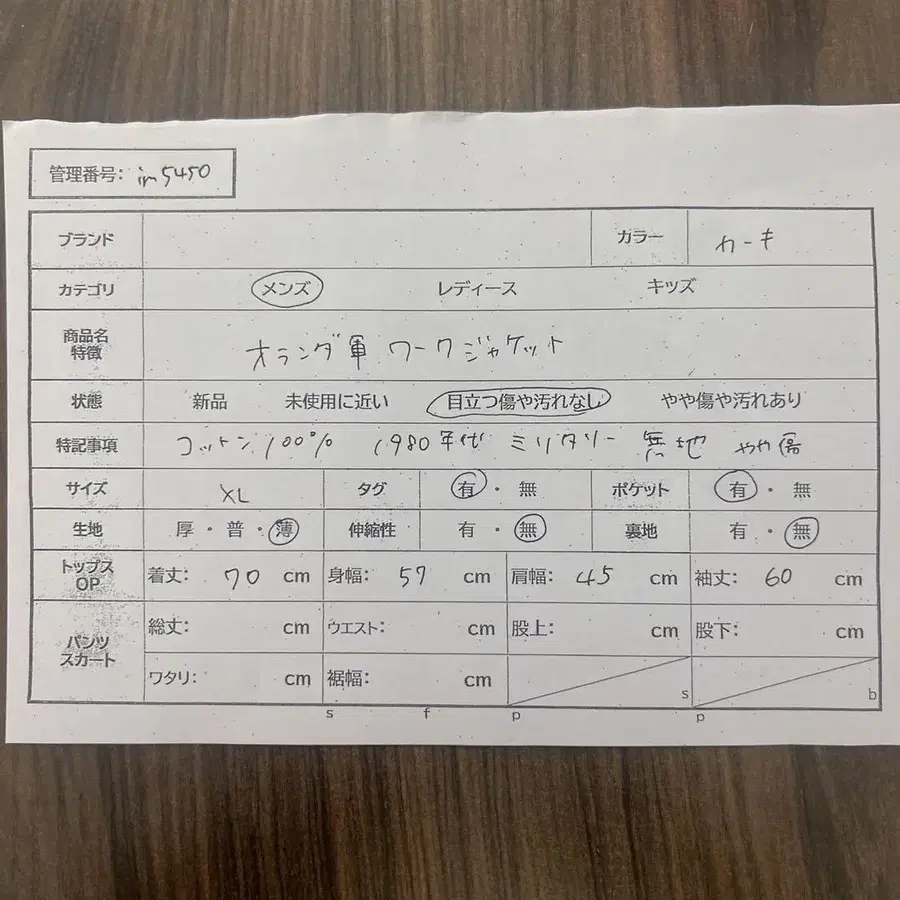 管理番号: im5450
ブランド カラー カーキ
カテゴリ メンズ レディース キッズ
商品名 特徴 オランダ軍 ワークジャケット
状態 新品 未使用に近い 目立つ傷や汚れなし やや傷や汚れあり
特記事項 コットン100% 1980年代 ミリタリー 無地 やや傷
サイズ XL タグ 有・無 ポケット 有・無
生地 厚・普・薄 伸縮性 有・無 裏地 有・無
トップス OP 着丈: 70 cm 身幅: 57 cm 肩幅: 45 cm 袖丈: 60 cm
パンツ スカート 総丈: cm ウエスト: cm 股上: cm 股下: cm
ワタリ: cm 裾幅: cm s b
s f p p